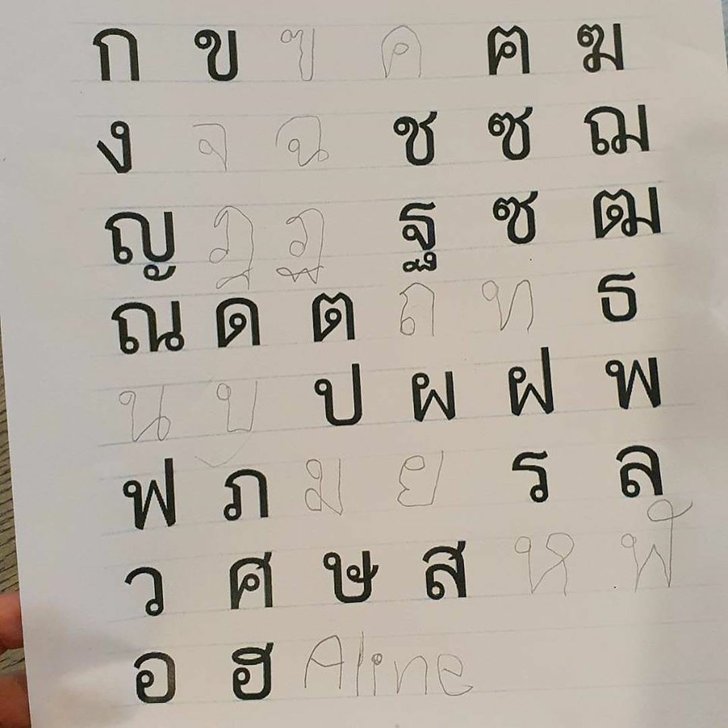 ก ข ฃ ค ฅ ฆ
ง จ ฉ ช ซ ฌ
ญ ฎ ฏ ฐ ซ ฒ
ณ ด ต ถ ท ธ
น บ ป ผ ฝ พ
ฟ ภ ม ย ร ล
ว ศ ษ ส ห ฬ
อ ฮ Aline